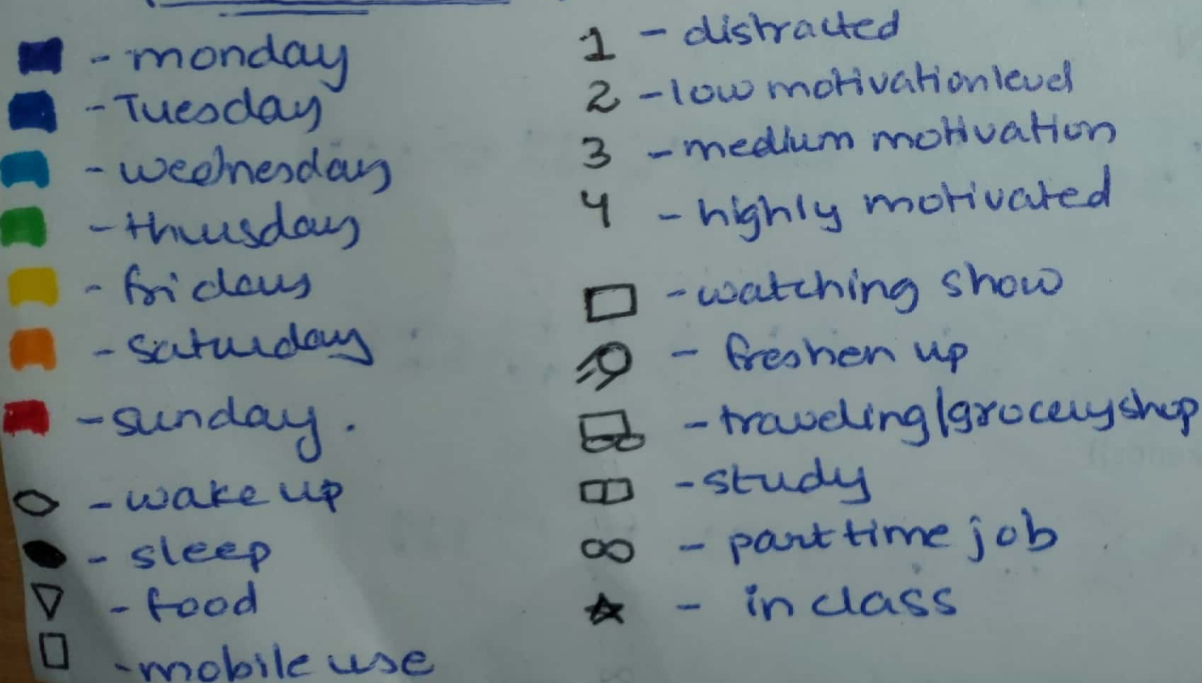 - monday
- Tuesday
- wednesday
- thursday
- friday
- saturday
- sunday.
- wake up
- sleep
- food
- mobile use
1 - distracted
2 - low motivation level
3 - medium motivation
4 - highly motivated
- watching show
- freshen up
- traveling/grocery shop
- study
- part time job
- in class